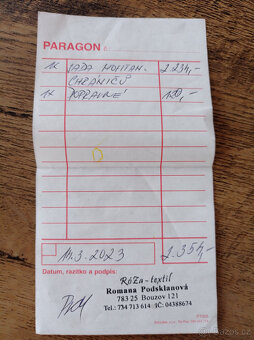 PARAGON č.
1x SADA MONTAN. 2.234,-
CHRÁNIČŮ
1x DOPRAVNÉ 120,-
14.3.2023 2.354,-
Datum, razítko a podpis:
RóZa-textil
Romana Podsklanová
783 25 Bouzov 121
Tel.: 734 713 614 IČ: 04388674